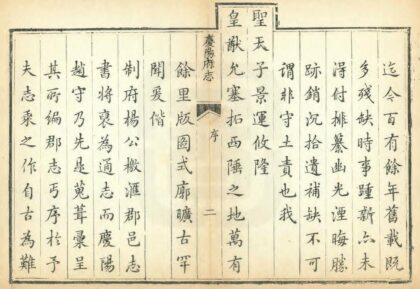 迄今百有餘年舊載既
多殘缺時事踵新亦未
淂付排纂幽光湮晦勝
跡銷沉拾遺補缺不可
謂非守土責也我
聖天子景運攸隆
皇猷允塞拓西陲之地萬有
慶陽府志
序
二
餘里版圖式廓曠古罕
聞爰偕
制府楊公檄滙郡邑志
書將裒為通志而慶陽
趙守乃先是蒐葺彙呈
其所編郡志丐序於予
夫志乘之作自古為難